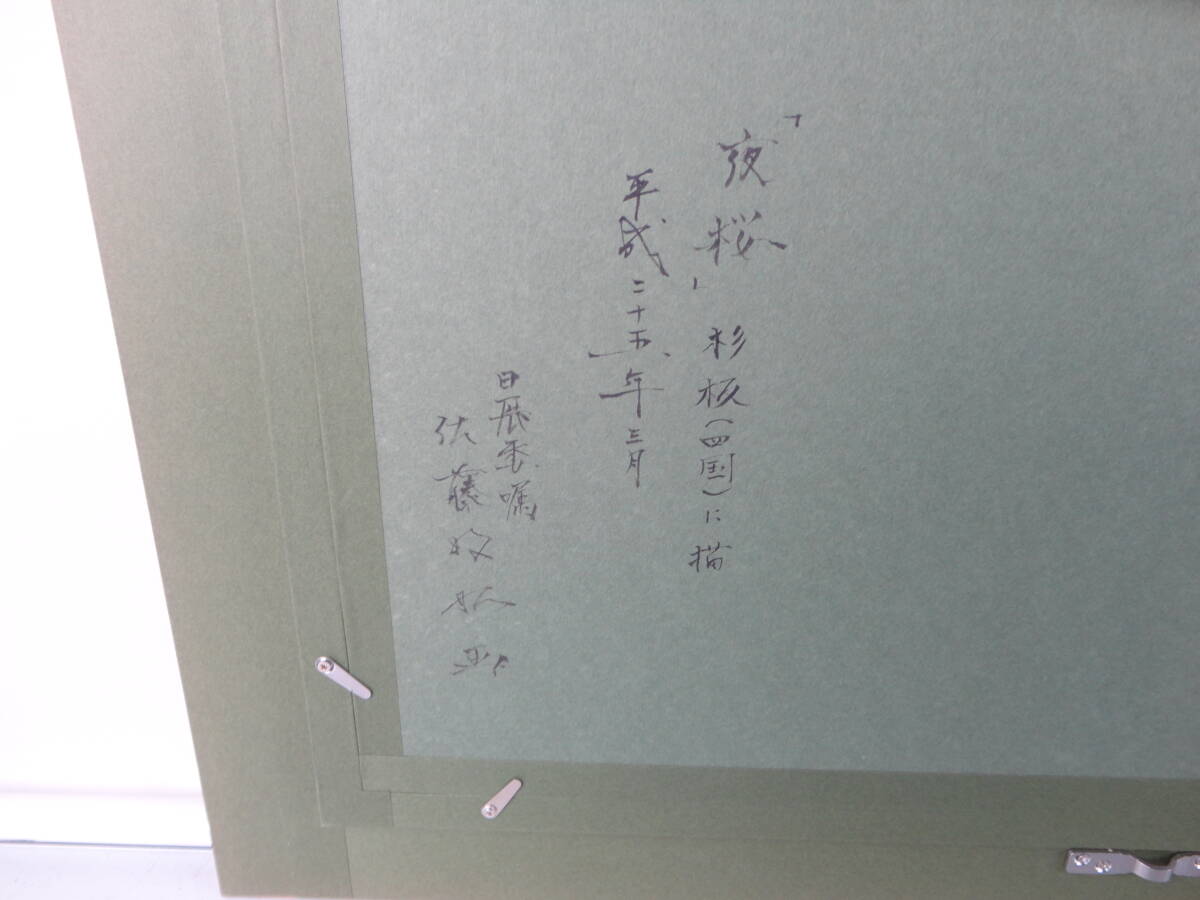 「夜桜」 杉板(四国)に描
平成二十五年三月
日展委嘱
佐藤